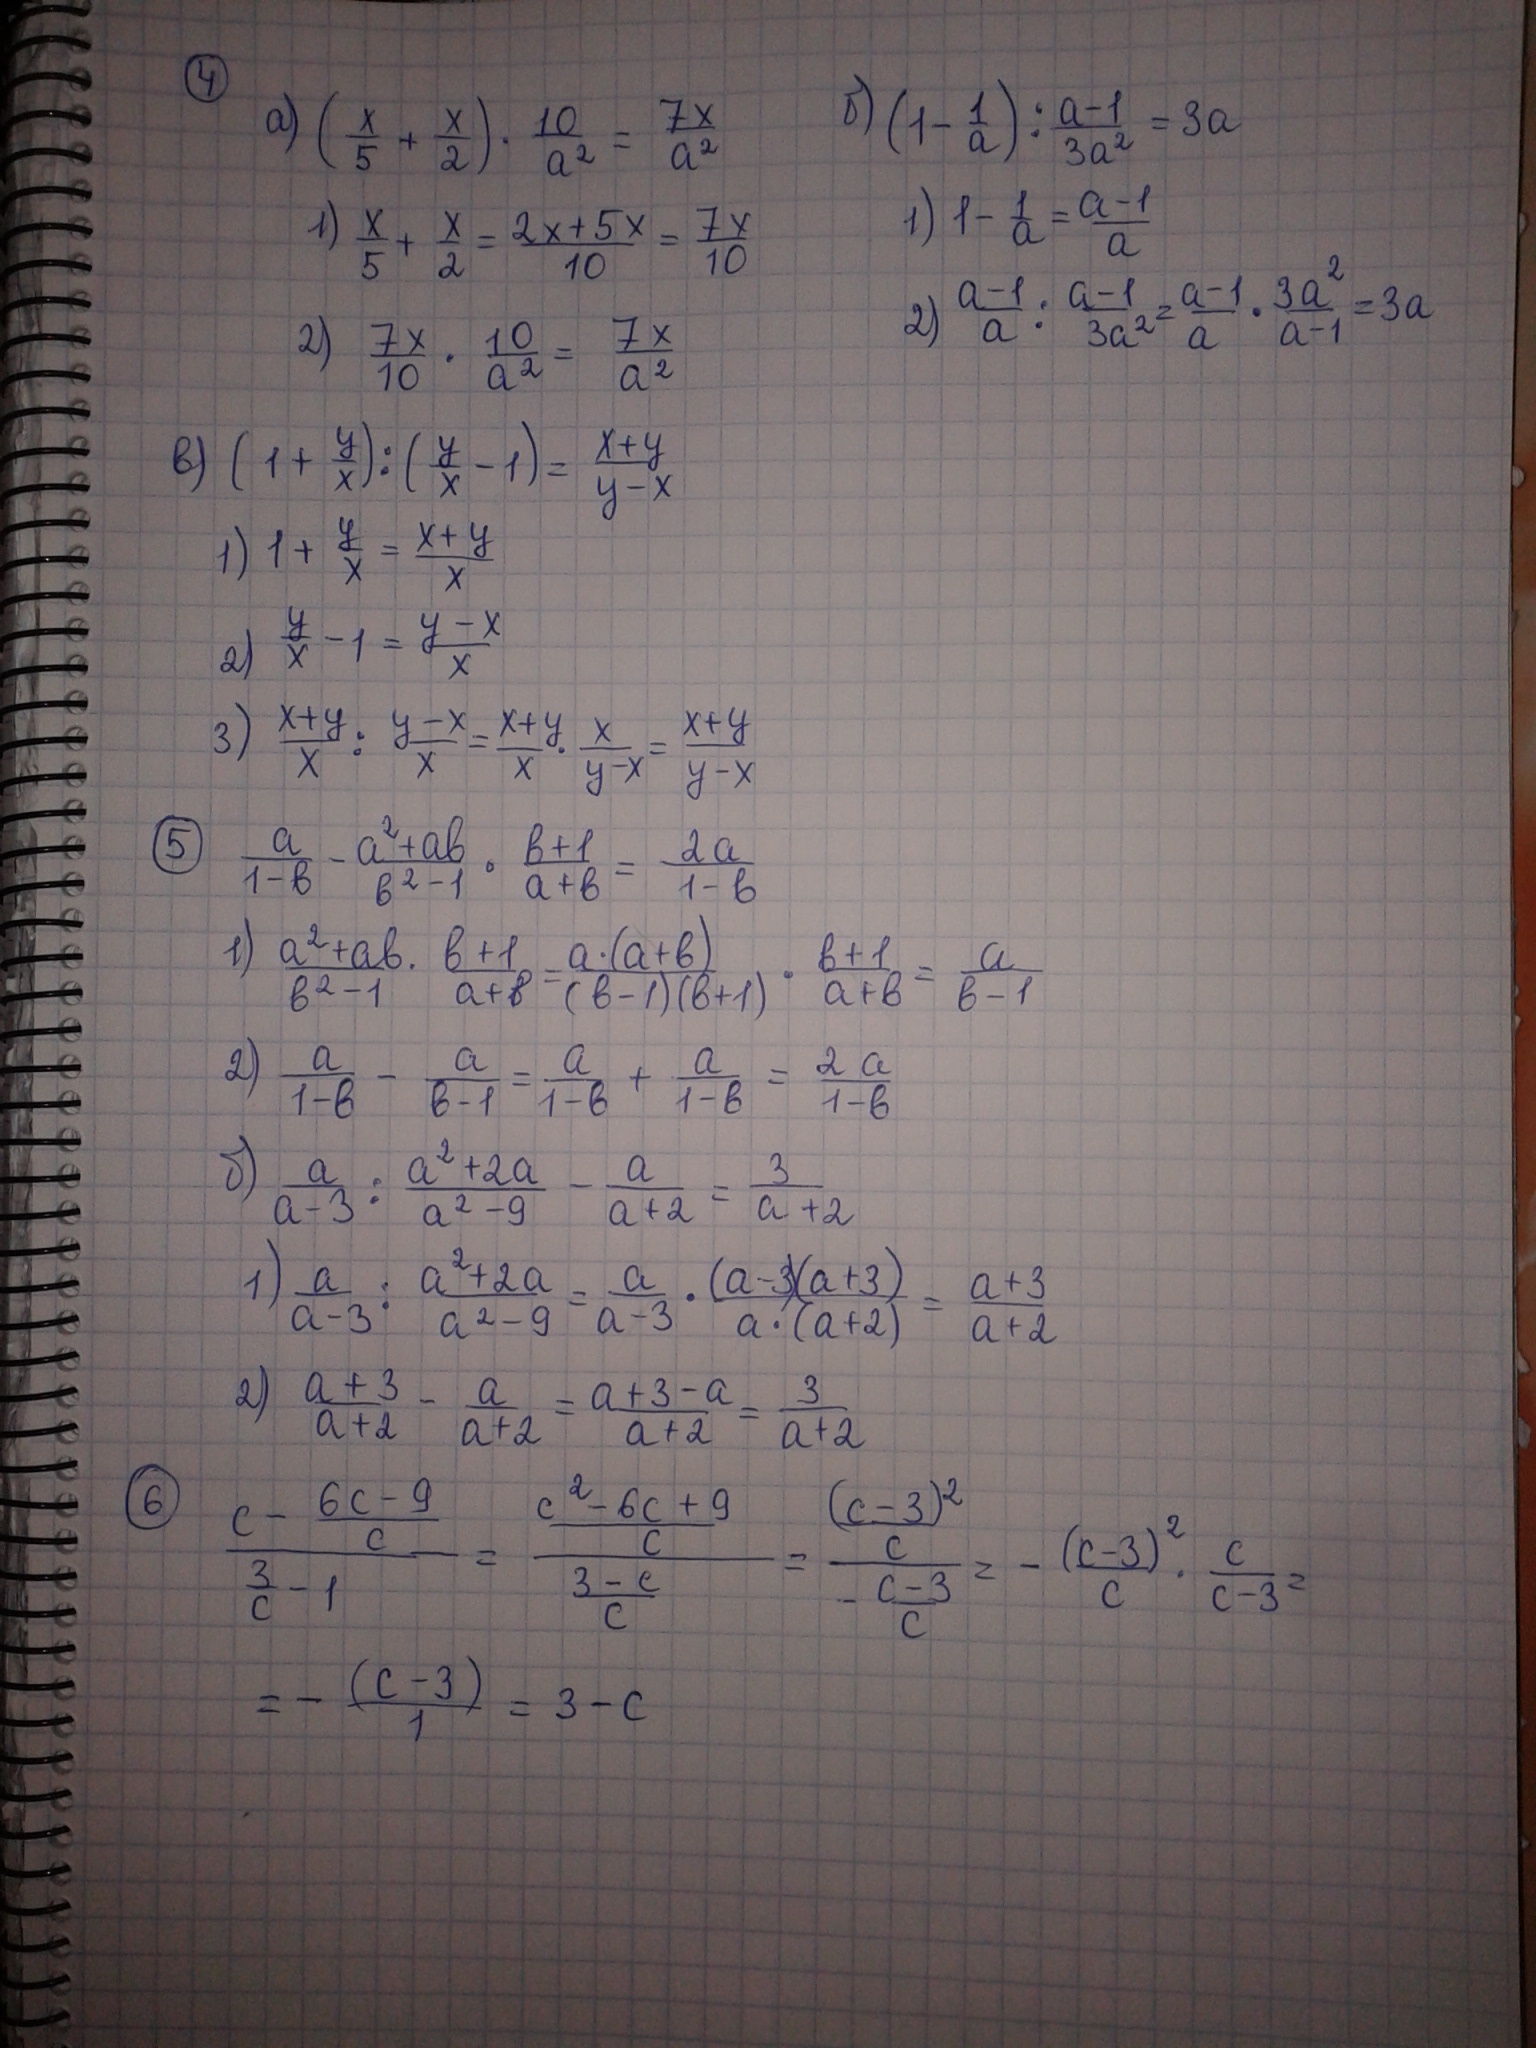 4
а) (x/5 + x/2) · 10/a² = 7x/a²
1) x/5 + x/2 = (2x+5x)/10 = 7x/10
2) 7x/10 · 10/a² = 7x/a²
б) (1 - 1/a) : (a-1)/3a² = 3a
1) 1 - 1/a = (a-1)/a
2) (a-1)/a : (a-1)/3a² = (a-1)/a · 3a²/(a-1) = 3a
в) (1 + y/x) : (y/x - 1) = (x+y)/(y-x)
1) 1 + y/x = (x+y)/x
2) y/x - 1 = (y-x)/x
3) (x+y)/x : (y-x)/x = (x+y)/x · x/(y-x) = (x+y)/(y-x)
5 a/(1-в) - (a²+aв)/(в²-1) · (в+1)/(a+в) = 2a/(1-в)
1) (a²+aв)/(в²-1) · (в+1)/(a+в) = a·(a+в)/(в-1)(в+1) · (в+1)/(a+в) = a/(в-1)
2) a/(1-в) - a/(в-1) = a/(1-в) + a/(1-в) = 2a/(1-в)
б) a/(a-3) : (a²+2a)/(a²-9) - a/(a+2) = 3/(a+2)
1) a/(a-3) : (a²+2a)/(a²-9) = a/(a-3) · (a-3)(a+3)/a·(a+2) = (a+3)/(a+2)
2) (a+3)/(a+2) - a/(a+2) = (a+3-a)/(a+2) = 3/(a+2)
6 (c - (6c-9)/c)/(3/c - 1) = ((c²-6c+9)/c)/((3-c)/c) = ((c-3)²/c)/(-(c-3)/c) = - (c-3)²/c · c/(c-3) =
= - (c-3)/1 = 3-c